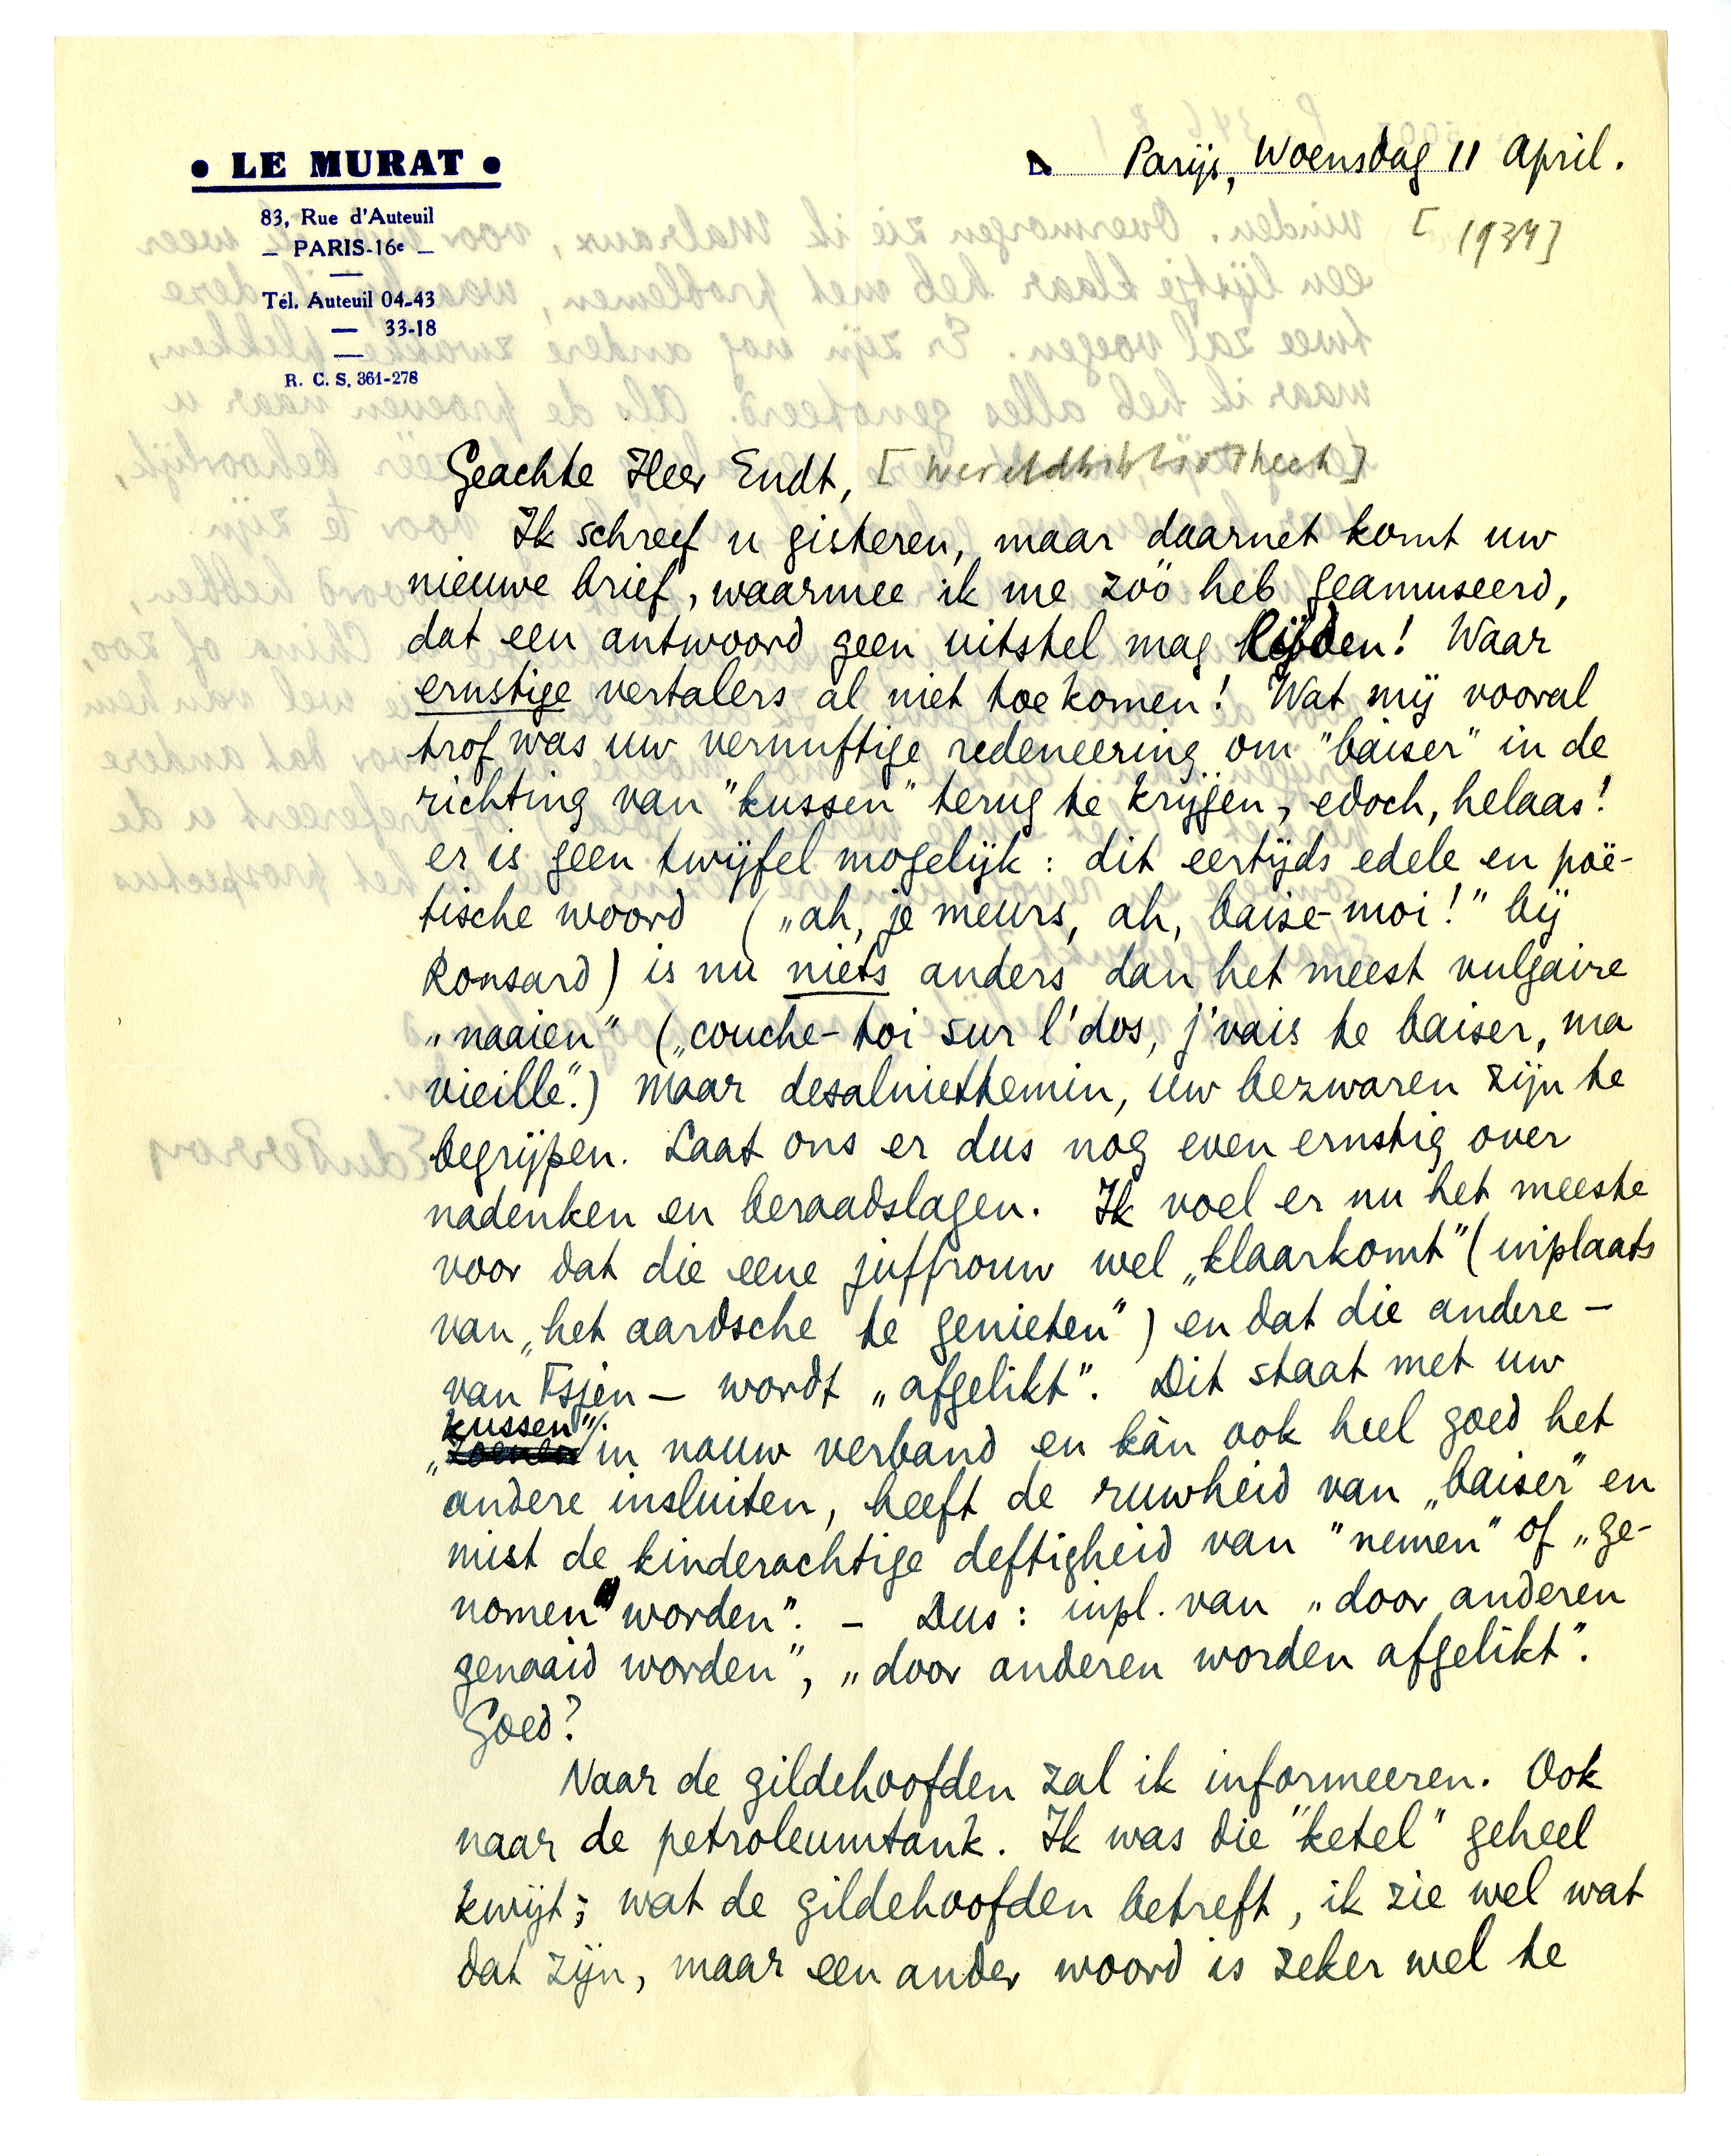 • LE MURAT •
83, Rue d'Auteuil
— PARIS-16e —
Tél. Auteuil 04-43
— 33-18
R. C. S. 361-278
Parijs, Woensdag 11 April.
[1934]
Geachte Heer Endt, [Wereldbibliotheek]
Ik schreef u gisteren, maar daarnet komt uw
nieuwe brief, waarmee ik me zóó heb geamuseerd,
dat een antwoord geen uitstel mag lijden! Waar
ernstige vertalers al niet toe komen! Wat mij vooral
trof was uw vernuftige redeneering om "baiser" in de
richting van "kussen" terug te krijgen, edoch, helaas!
er is geen twijfel mogelijk: dit eertijds edele en poë-
tische woord („ah, je meurs, ah, baise-moi!" bij
Ronsard) is nu niets anders dan het meest vulgaire
„naaien" („couche-toi sur l'dos, j'vais te baiser, ma
vieille".) Maar desalniettemin, uw bezwaren zijn te
begrijpen. Laat ons er dus nog even ernstig over
nadenken en beraadslagen. Ik voel er nu het meeste
voor dat die eene juffrouw wel „klaarkomt" (inplaats
van „het aardsche te genieten") en dat die andere –
van Tsjen – wordt „afgelikt". Dit staat met uw
„kussen" in nauw verband en kàn ook heel goed het
andere insluiten, heeft de ruwheid van „baiser" en
mist de kinderachtige deftigheid van "nemen" of „ge-
nomen worden". – Dus: inpl. van „door anderen
genaaid worden", „door anderen worden afgelikt".
Goed?
Naar de gildehoofden zal ik informeeren. Ook
naar de petroleumtank. Ik was die "ketel" geheel
kwijt; wat de gildehoofden betreft, ik zie wel wat
dat zijn, maar een ander woord is zeker wel te